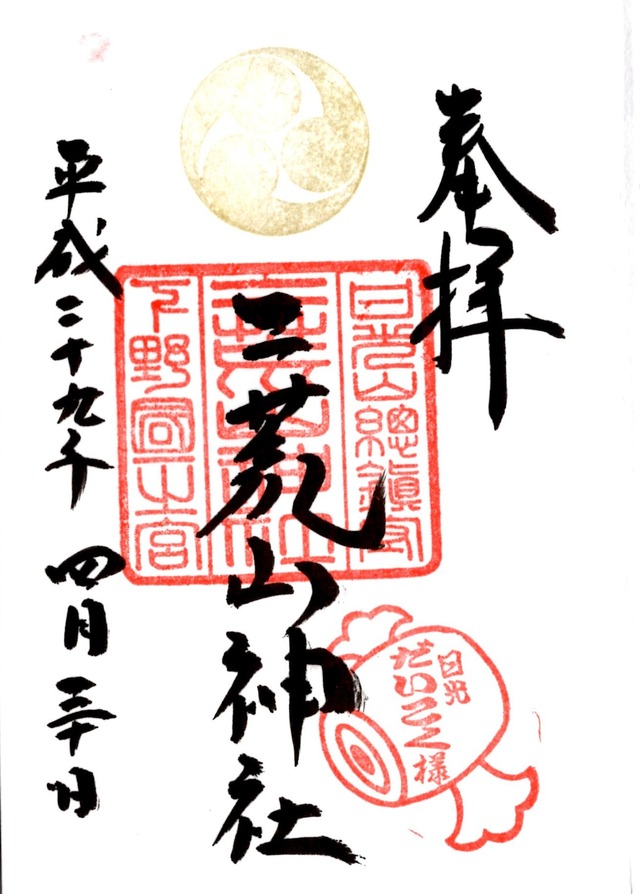 奉拝
日光山總鎮守
二荒山神社
二荒山神社
下野國一之宮
日光
だいこく様
平成二十九年 四月三十日